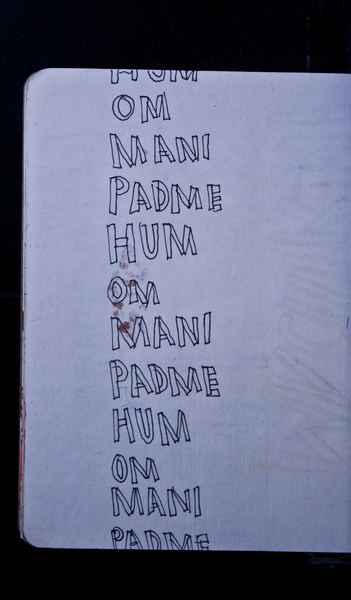 HUM
OM
MANI
PADME
HUM
OM
MANI
PADME
HUM
OM
MANI
PADME